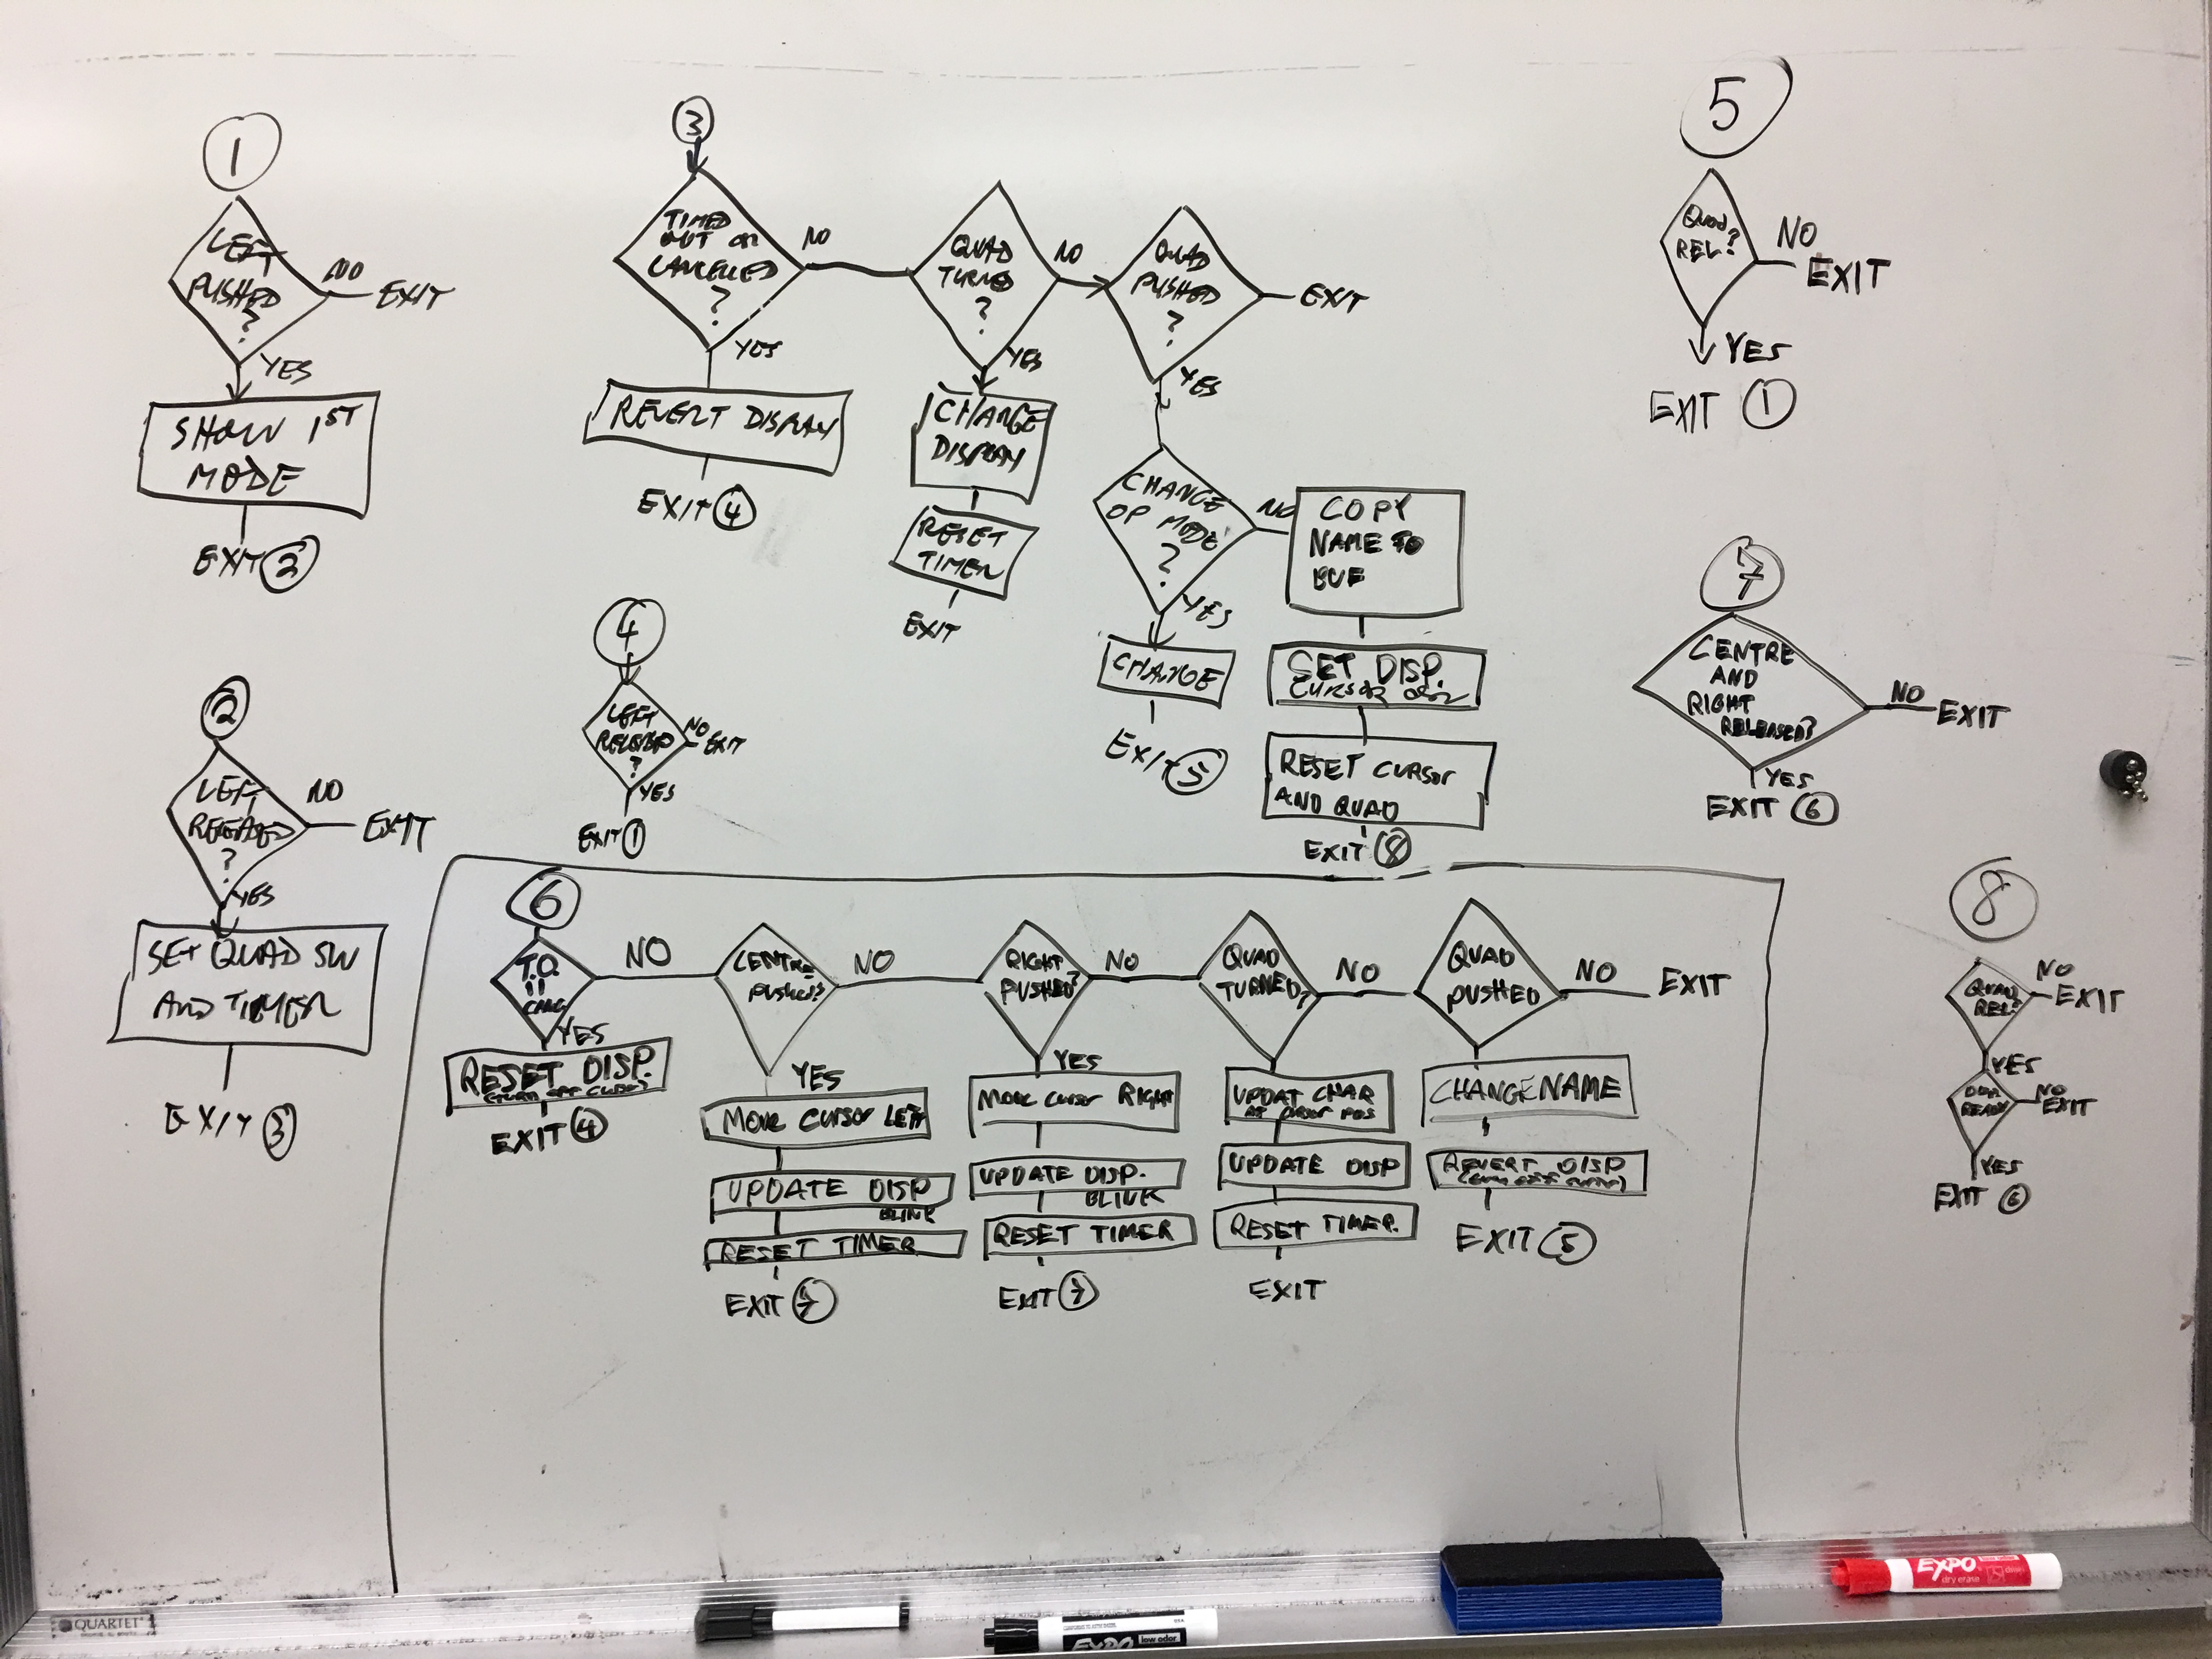 1
LEFT
PUSHED
?
NO
EXIT
YES
SHOW 1ST
MODE
EXIT 2
2
LEFT
RELEASED
?
NO
EXIT
YES
SET QUAD SW
AND TIMER
EXIT 3
3
TIMED
OUT OR
CANCELLED
?
NO
YES
REVERT DISPLAY
EXIT 4
QUAD
TURNED
?
NO
YES
CHANGE
DISPLAY
RESET
TIMER
EXIT
QUAD
PUSHED
?
EXIT
YES
CHANGE
OP MODE
?
NO
YES
CHANGE
EXIT 5
COPY
NAME TO
BUF
SET DISP.
CURSOR
RESET CURSOR
AND QUAD
EXIT 8
4
LEFT
RELEASED
?
NO
EXIT
YES
EXIT 1
5
QUAD
REL?
NO
EXIT
YES
EXIT 1
7
CENTRE
AND
RIGHT
RELEASED?
NO
EXIT
YES
EXIT 6
6
T.O.
||
CANC
NO
YES
RESET DISP.
EXIT 4
CENTRE
PUSHED?
NO
YES
MOVE CURSOR LEFT
UPDATE DISP
BLINK
RESET TIMER
EXIT 7
RIGHT
PUSHED?
NO
YES
MOVE CURSOR RIGHT
UPDATE DISP.
BLINK
RESET TIMER
EXIT 7
QUAD
TURNED?
NO
UPDAT CHAR
AT CURSOR POS
UPDATE DISP
RESET TIMER.
EXIT
QUAD
PUSHED
NO
EXIT
CHANGE NAME
REVERT DISP
EXIT 5
8
QUAD
REL?
NO
EXIT
YES
READY
NO
EXIT
YES
EXIT 6
QUARTET
EXPO
low odor
EXPO
dry erase